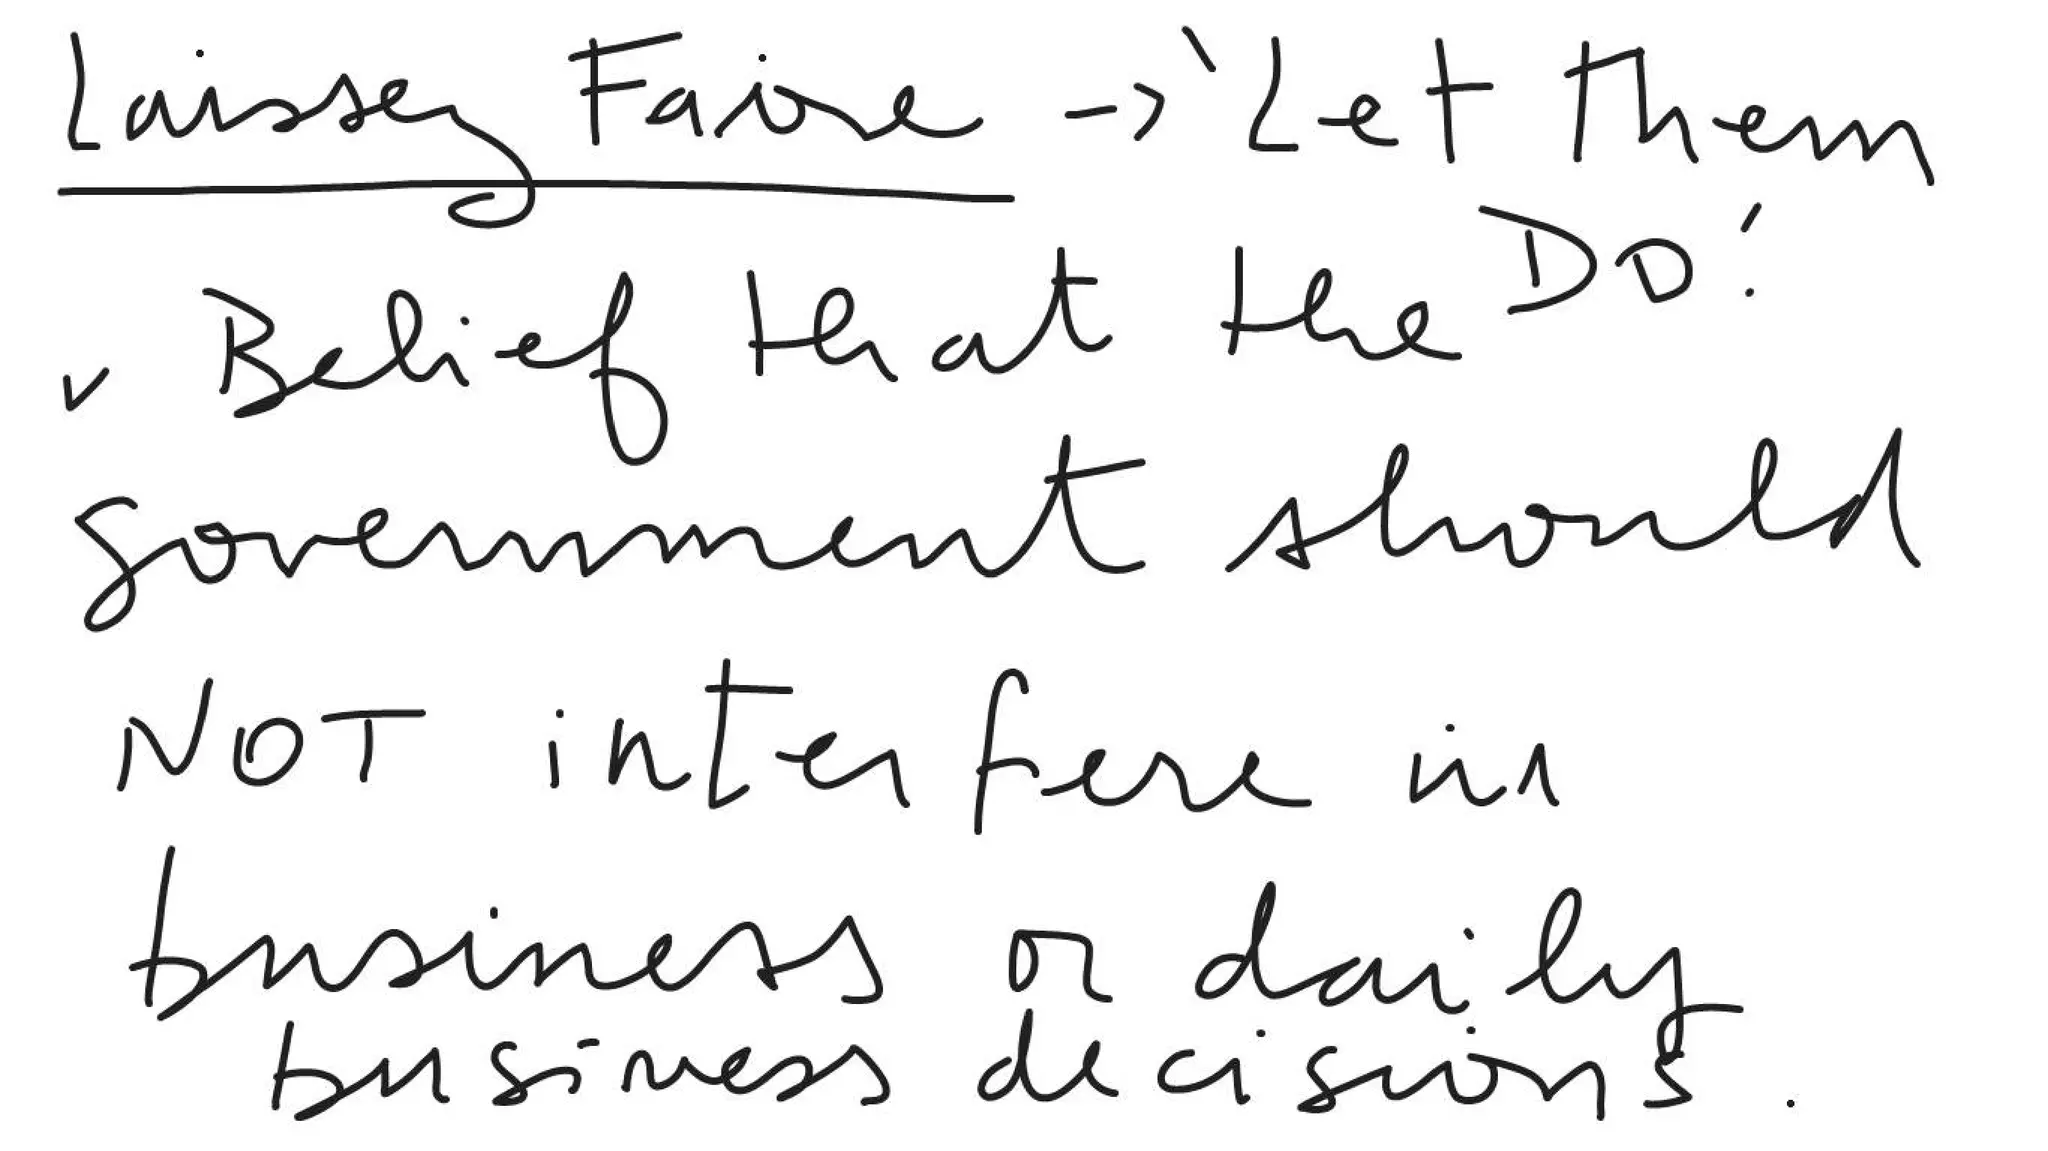 Laissez Faire -> 'Let them
DO!
✓ Belief that the
government should
NOT interfere in
business or daily
business decisions.